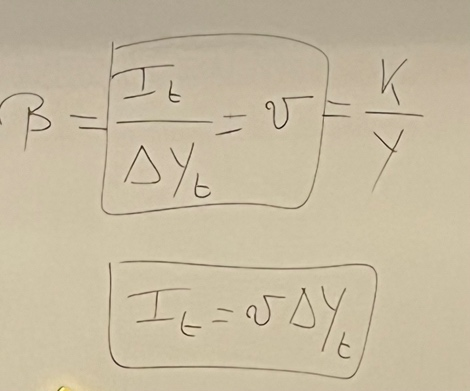 β = I_t / ΔY_t = v = K / Y
I_t = v ΔY_t